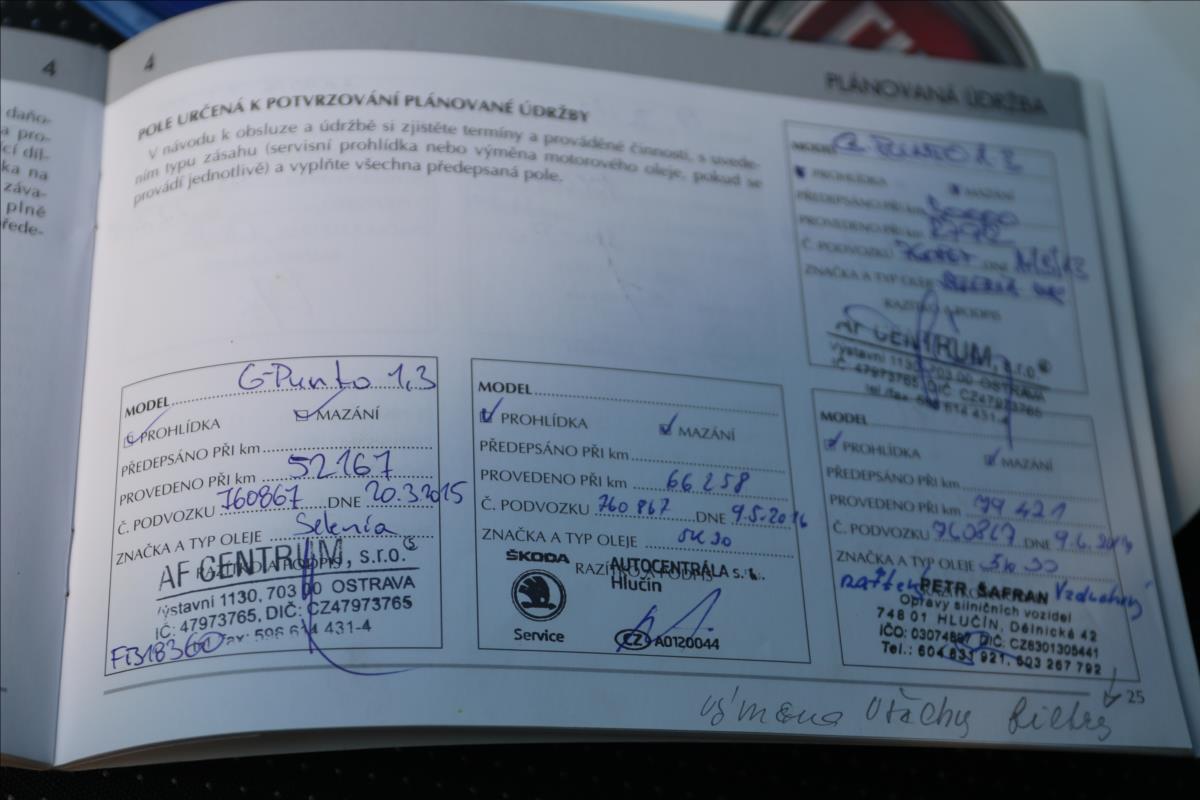 4
daňo-
a pro-
cí díl-
ka na
záva-
plně
řede-
4
PLÁNOVANÁ ÚDRŽBA
POLE URČENÁ K POTVRZOVÁNÍ PLÁNOVANÉ ÚDRŽBY
V návodu k obsluze a údržbě si zjistěte termíny a prováděné činnosti, s uvede-
ním typu zásahu (servisní prohlídka nebo výměna motorového oleje, pokud se
provádí jednotlivě) a vyplňte všechna předepsaná pole.
MODEL G-PUNTO 1,3
PROHLÍDKA MAZÁNÍ
PŘEDEPSÁNO PŘI km
PROVEDENO PŘI km
Č. PODVOZKU 760867 DNE
ZNAČKA A TYP OLEJE
RAZÍTKO A PODPIS
AF CENTRUM, s.r.o.
Výstavní 1130, 703 00 OSTRAVA
IČ: 47973765, DIČ: CZ47973765
tel./fax: 596 614 431-4
MODEL G-Punto 1,3
PROHLÍDKA MAZÁNÍ
PŘEDEPSÁNO PŘI km
PROVEDENO PŘI km 52167
Č. PODVOZKU 760867 DNE 20.3.2015
ZNAČKA A TYP OLEJE Selenia
RAZÍTKO A PODPIS
AF CENTRUM, s.r.o.
Výstavní 1130, 703 00 OSTRAVA
IČ: 47973765, DIČ: CZ47973765
fax: 596 614 431-4
MODEL
PROHLÍDKA MAZÁNÍ
PŘEDEPSÁNO PŘI km
PROVEDENO PŘI km 66 258
Č. PODVOZKU 760 867 DNE 9.5.2016
ZNAČKA A TYP OLEJE 5W30
RAZÍTKO A PODPIS
ŠKODA
Service
AUTOCENTRÁLA s.r.o.
Hlučín
CZ A0120044
MODEL
PROHLÍDKA MAZÁNÍ
PŘEDEPSÁNO PŘI km
PROVEDENO PŘI km 79 421
Č. PODVOZKU 760867 DNE
ZNAČKA A TYP OLEJE 5W30
PETR ŠAFRAN
Opravy silničních vozidel
748 01 HLUČÍN, Dělnické 42
DIČ: CZ6301305441
Tel.: 604 831 921, 603 267 792
25